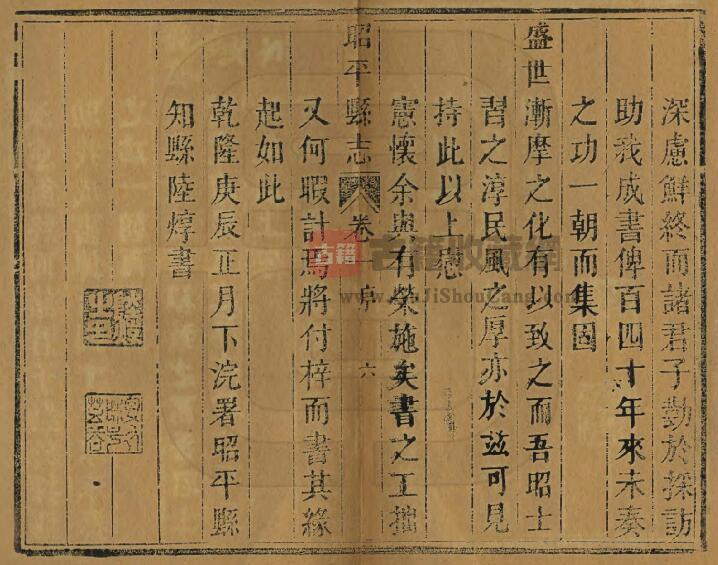 深慮鮮終而諸君子勤於採訪
助我成書俾百四十年來未奏
之功一朝而集固
盛世漸摩之化有以致之而吾昭士
習之淳民風之厚亦於茲可見
持此以上慰
憲懷余與有榮施矣書之工拙
昭平縣志 卷一序 六
又何暇計焉將付梓而書其緣
起如此
乾隆庚辰正月下浣署昭平縣
知縣陸焞書
古籍
古籍收藏網
www.GuJiShouCang.com